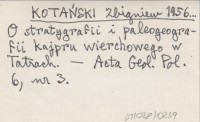 KOTAŃSKI Zbigniew 1956...
O stratygrafii i paleogeogra-
fii kajpru wierchowego w
Tatrach. — Acta Geol. Pol.
6, nr 3.